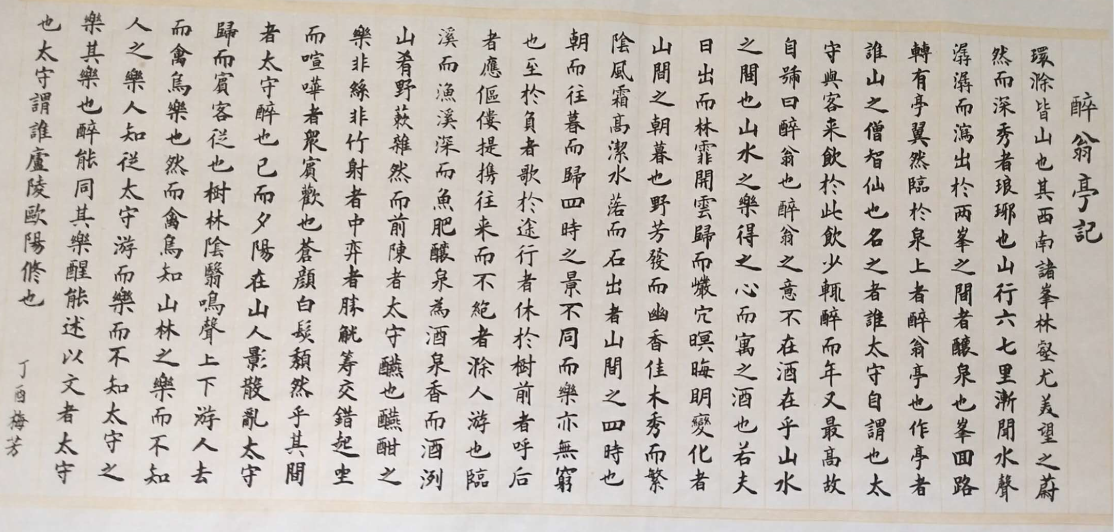 醉翁亭記
環滁皆山也其西南諸峯林壑尤美望之蔚
然而深秀者琅琊也山行六七里漸聞水聲
潺潺而瀉出於两峯之間者釀泉也峯回路
轉有亭翼然臨於泉上者醉翁亭也作亭者
誰山之僧智仙也名之者誰太守自謂也太
守與客来飲於此飲少輒醉而年又最高故
自號曰醉翁也醉翁之意不在酒在乎山水
之間也山水之樂得之心而寓之酒也若夫
日出而林霏開雲歸而巖穴暝晦明變化者
山間之朝暮也野芳發而幽香佳木秀而繁
陰風霜高潔水落而石出者山間之四時也
朝而往暮而歸四時之景不同而樂亦無窮
也至於負者歌於途行者休於樹前者呼后
者應傴僂提攜往来而不絕者滁人游也臨
溪而漁溪深而魚肥釀泉為酒泉香而酒洌
山肴野蔌雜然而前陳者太守醼也醼酣之
樂非絲非竹射者中弈者勝觥籌交錯起坐
而喧嘩者眾賓歡也蒼顏白髮頹然乎其間
者太守醉也已而夕陽在山人影散亂太守
歸而賓客從也樹林陰翳鳴聲上下游人去
而禽鳥樂也然而禽鳥知山林之樂而不知
人之樂人知從太守游而樂而不知太守之
樂其樂也醉能同其樂醒能述以文者太守
也太守謂誰廬陵歐陽脩也
丁酉梅芳